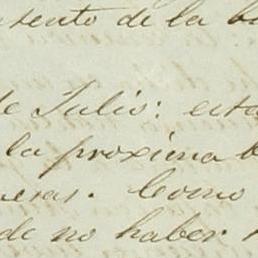 de la
de Julio: esta
la proxima
Como
de no haber